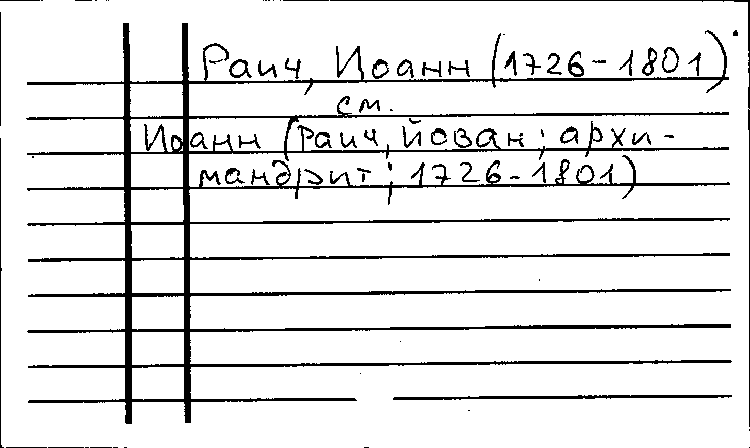 Раич, Иоанн (1726-1801)
см.
Иоанн (Раич, Йован; архи-
мандрит; 1726-1801)